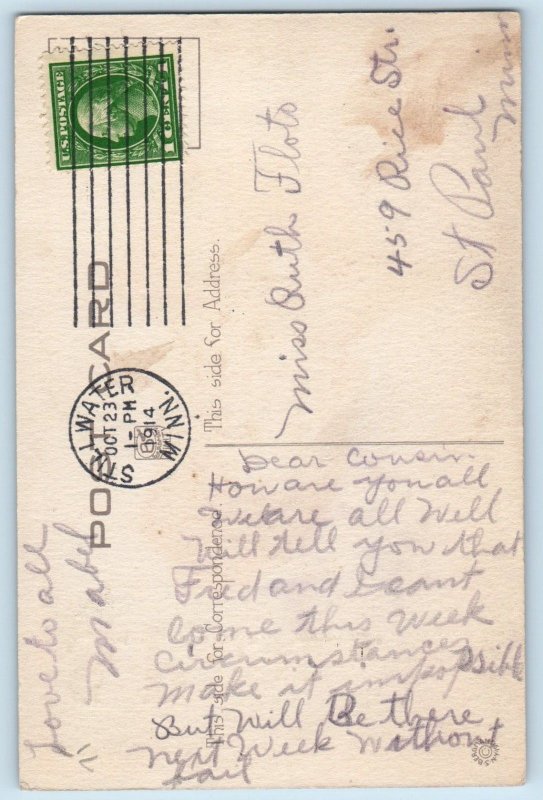 U.S. POSTAGE
1 CENT 1
POST CARD
STILLWATER MINN.
OCT 23
1- PM
1914
This side for Address.
Miss Ruth Floto
459 Rice Str.
St Paul
Minn
This side for Correspondence.
Dear Cousin.
How are you all
We are all Well
Will tell you that
Fred and I cant
Come this Week
Circumstances
Make it impossible
But Will Be there
next Week Without
fail
Love to all
Mabel